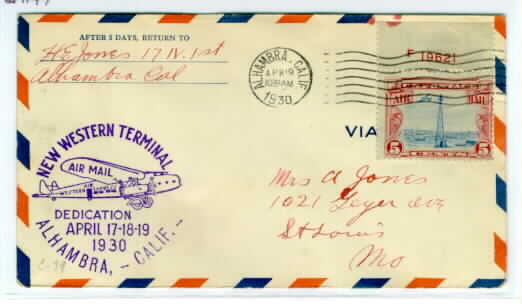 AFTER 5 DAYS, RETURN TO
H E Jones 17 W. 1st
Alhambra Cal
ALHAMBRA, CALIF.
APR 19
1930
F 19621
AIR MAIL
5 CENTS 5
VIA
NEW WESTERN TERMINAL
AIR MAIL
WESTERN AIR EXPRESS
DEDICATION
APRIL 17-18-19
1930
ALHAMBRA, - CALIF. -
Mrs A Jones
1021 Geyer Ave
St Louis
Mo